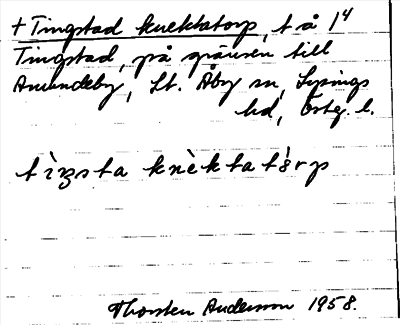 + Tingstad knektatorp, t å 1⁴
Tingstad, på gränsen till
Amundeby, St. Åby sn, Lysings
hd, Östg. l.
tìŋsta knèktatòrp
Thorsten Andersson 1958.